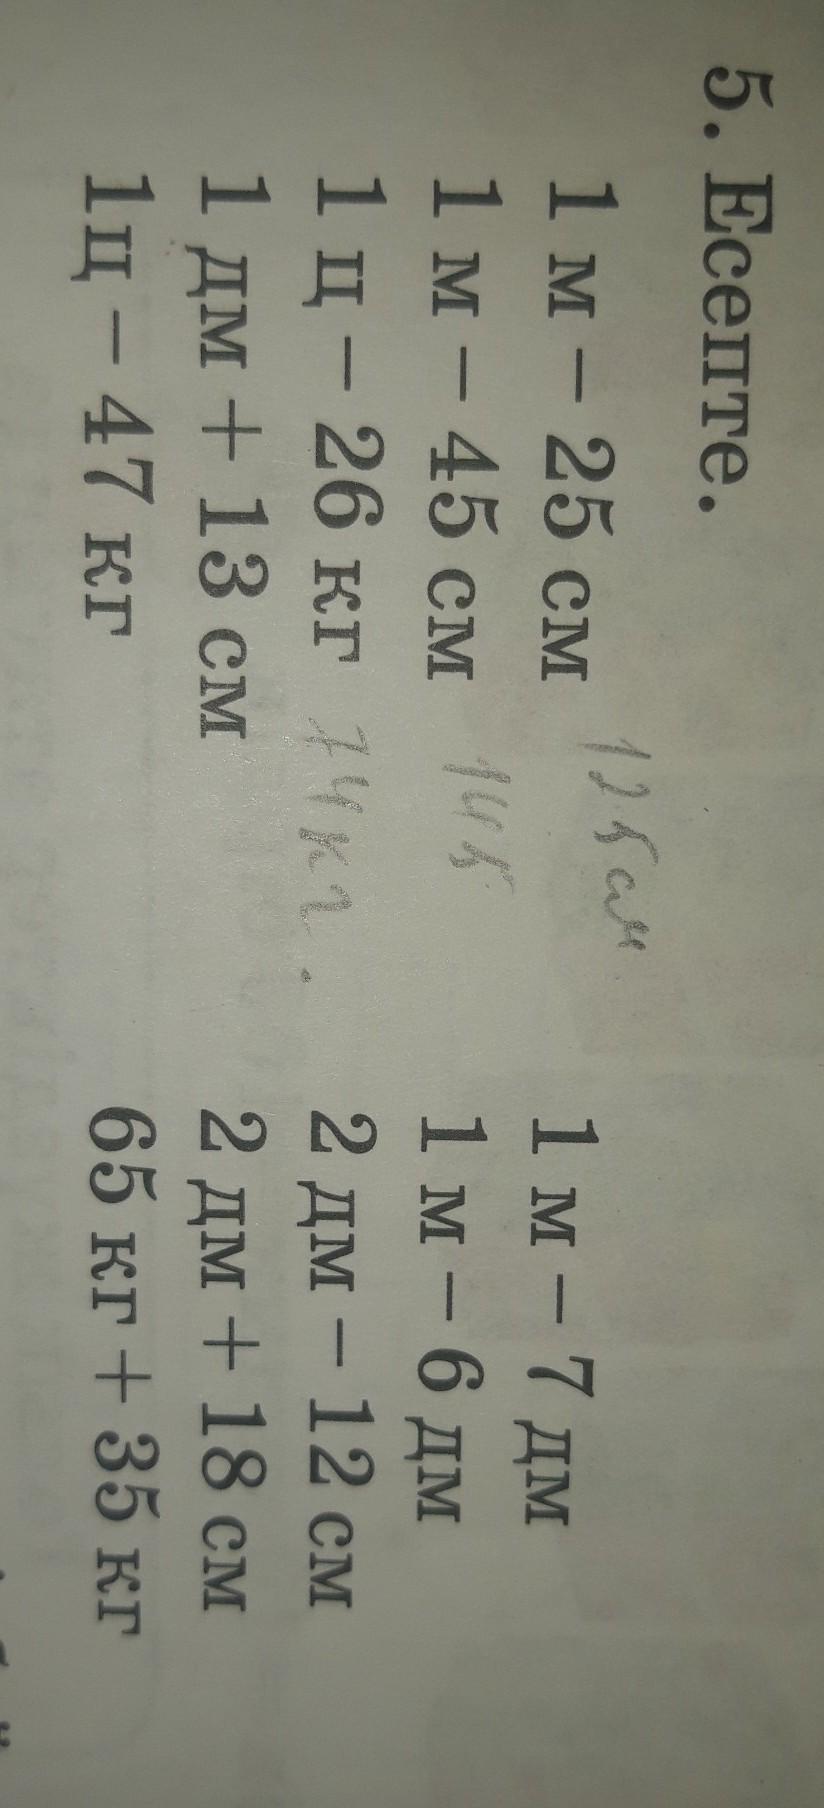 5. Есепте.
1 м – 25 см 125 см 1 м – 7 дм
1 м – 45 см 145 1 м – 6 дм
1 ц – 26 кг 74 кг. 2 дм – 12 см
1 дм + 13 см 2 дм + 18 см
1ц – 47 кг 65 кг + 35 кг